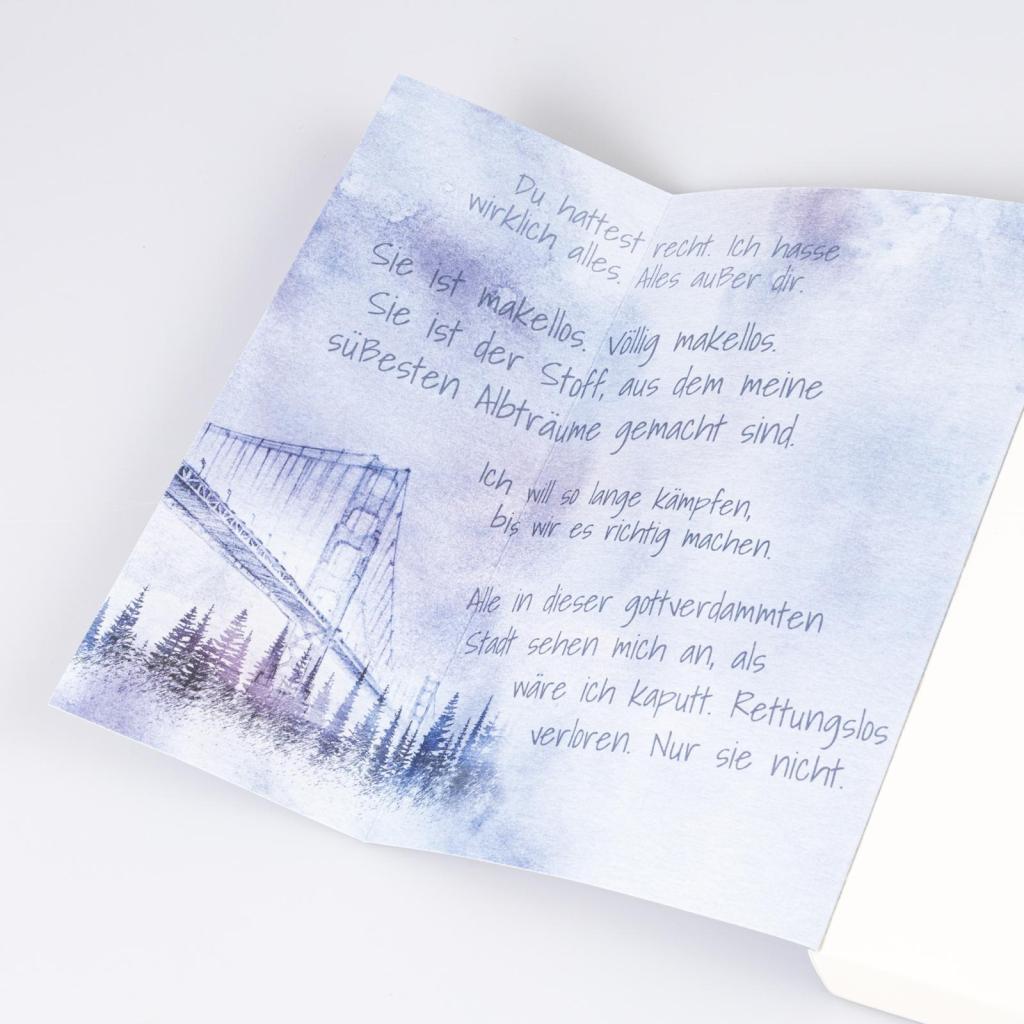 Du hattest recht. Ich hasse
wirklich alles. Alles außer dir.
Sie ist makellos. Völlig makellos.
Sie ist der Stoff, aus dem meine
süßesten Albträume gemacht sind.
Ich will so lange kämpfen,
bis wir es richtig machen.
Alle in dieser gottverdammten
Stadt sehen mich an, als
wäre ich kaputt. Rettungslos
verloren. Nur sie nicht.